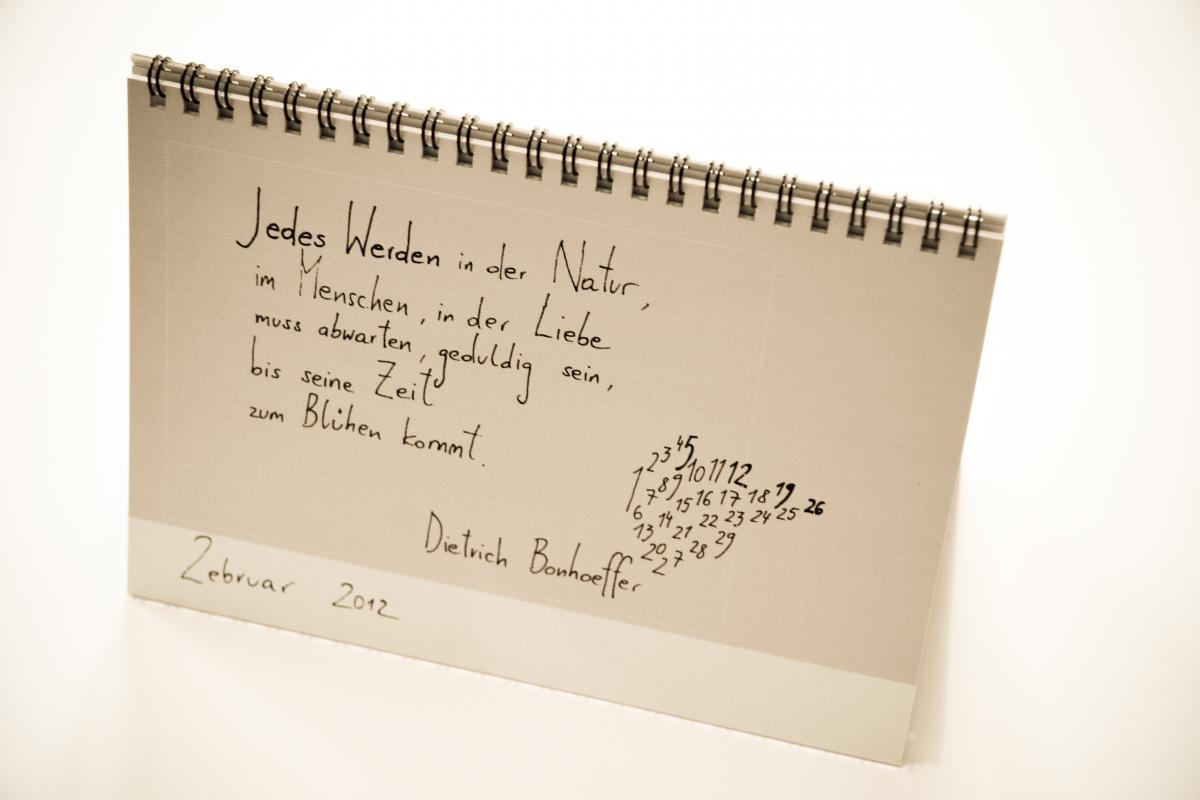 Jedes Werden in der Natur,
im Menschen, in der Liebe
muss abwarten, geduldig sein,
bis seine Zeit
zum Blühen kommt.
Dietrich Bonhoeffer
1 2 3 4 5
6 7 8 9 10 11 12
13 14 15 16 17 18 19
20 21 22 23 24 25 26
27 28 29
2ebruar 2012